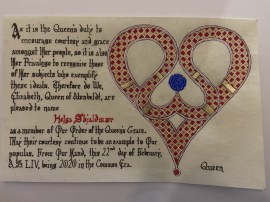 As it is the Queen's duty to
encourage courtesy and grace
amongst Her people, so it is also
Her Privilege to recognize those
of Her subjects who exemplify
these ideals. Therefore do We,
Elizabeth, Queen of Æthelmearc, are
pleased to name
Helga Skjaldmær
as a member of Our Order of the Queen's Grace.
May their courtesy continue to be an example to Our
populace. From Our Hand, this 22nd day of February,
A.S. LIV, being 2020 in the Common Era.
Queen